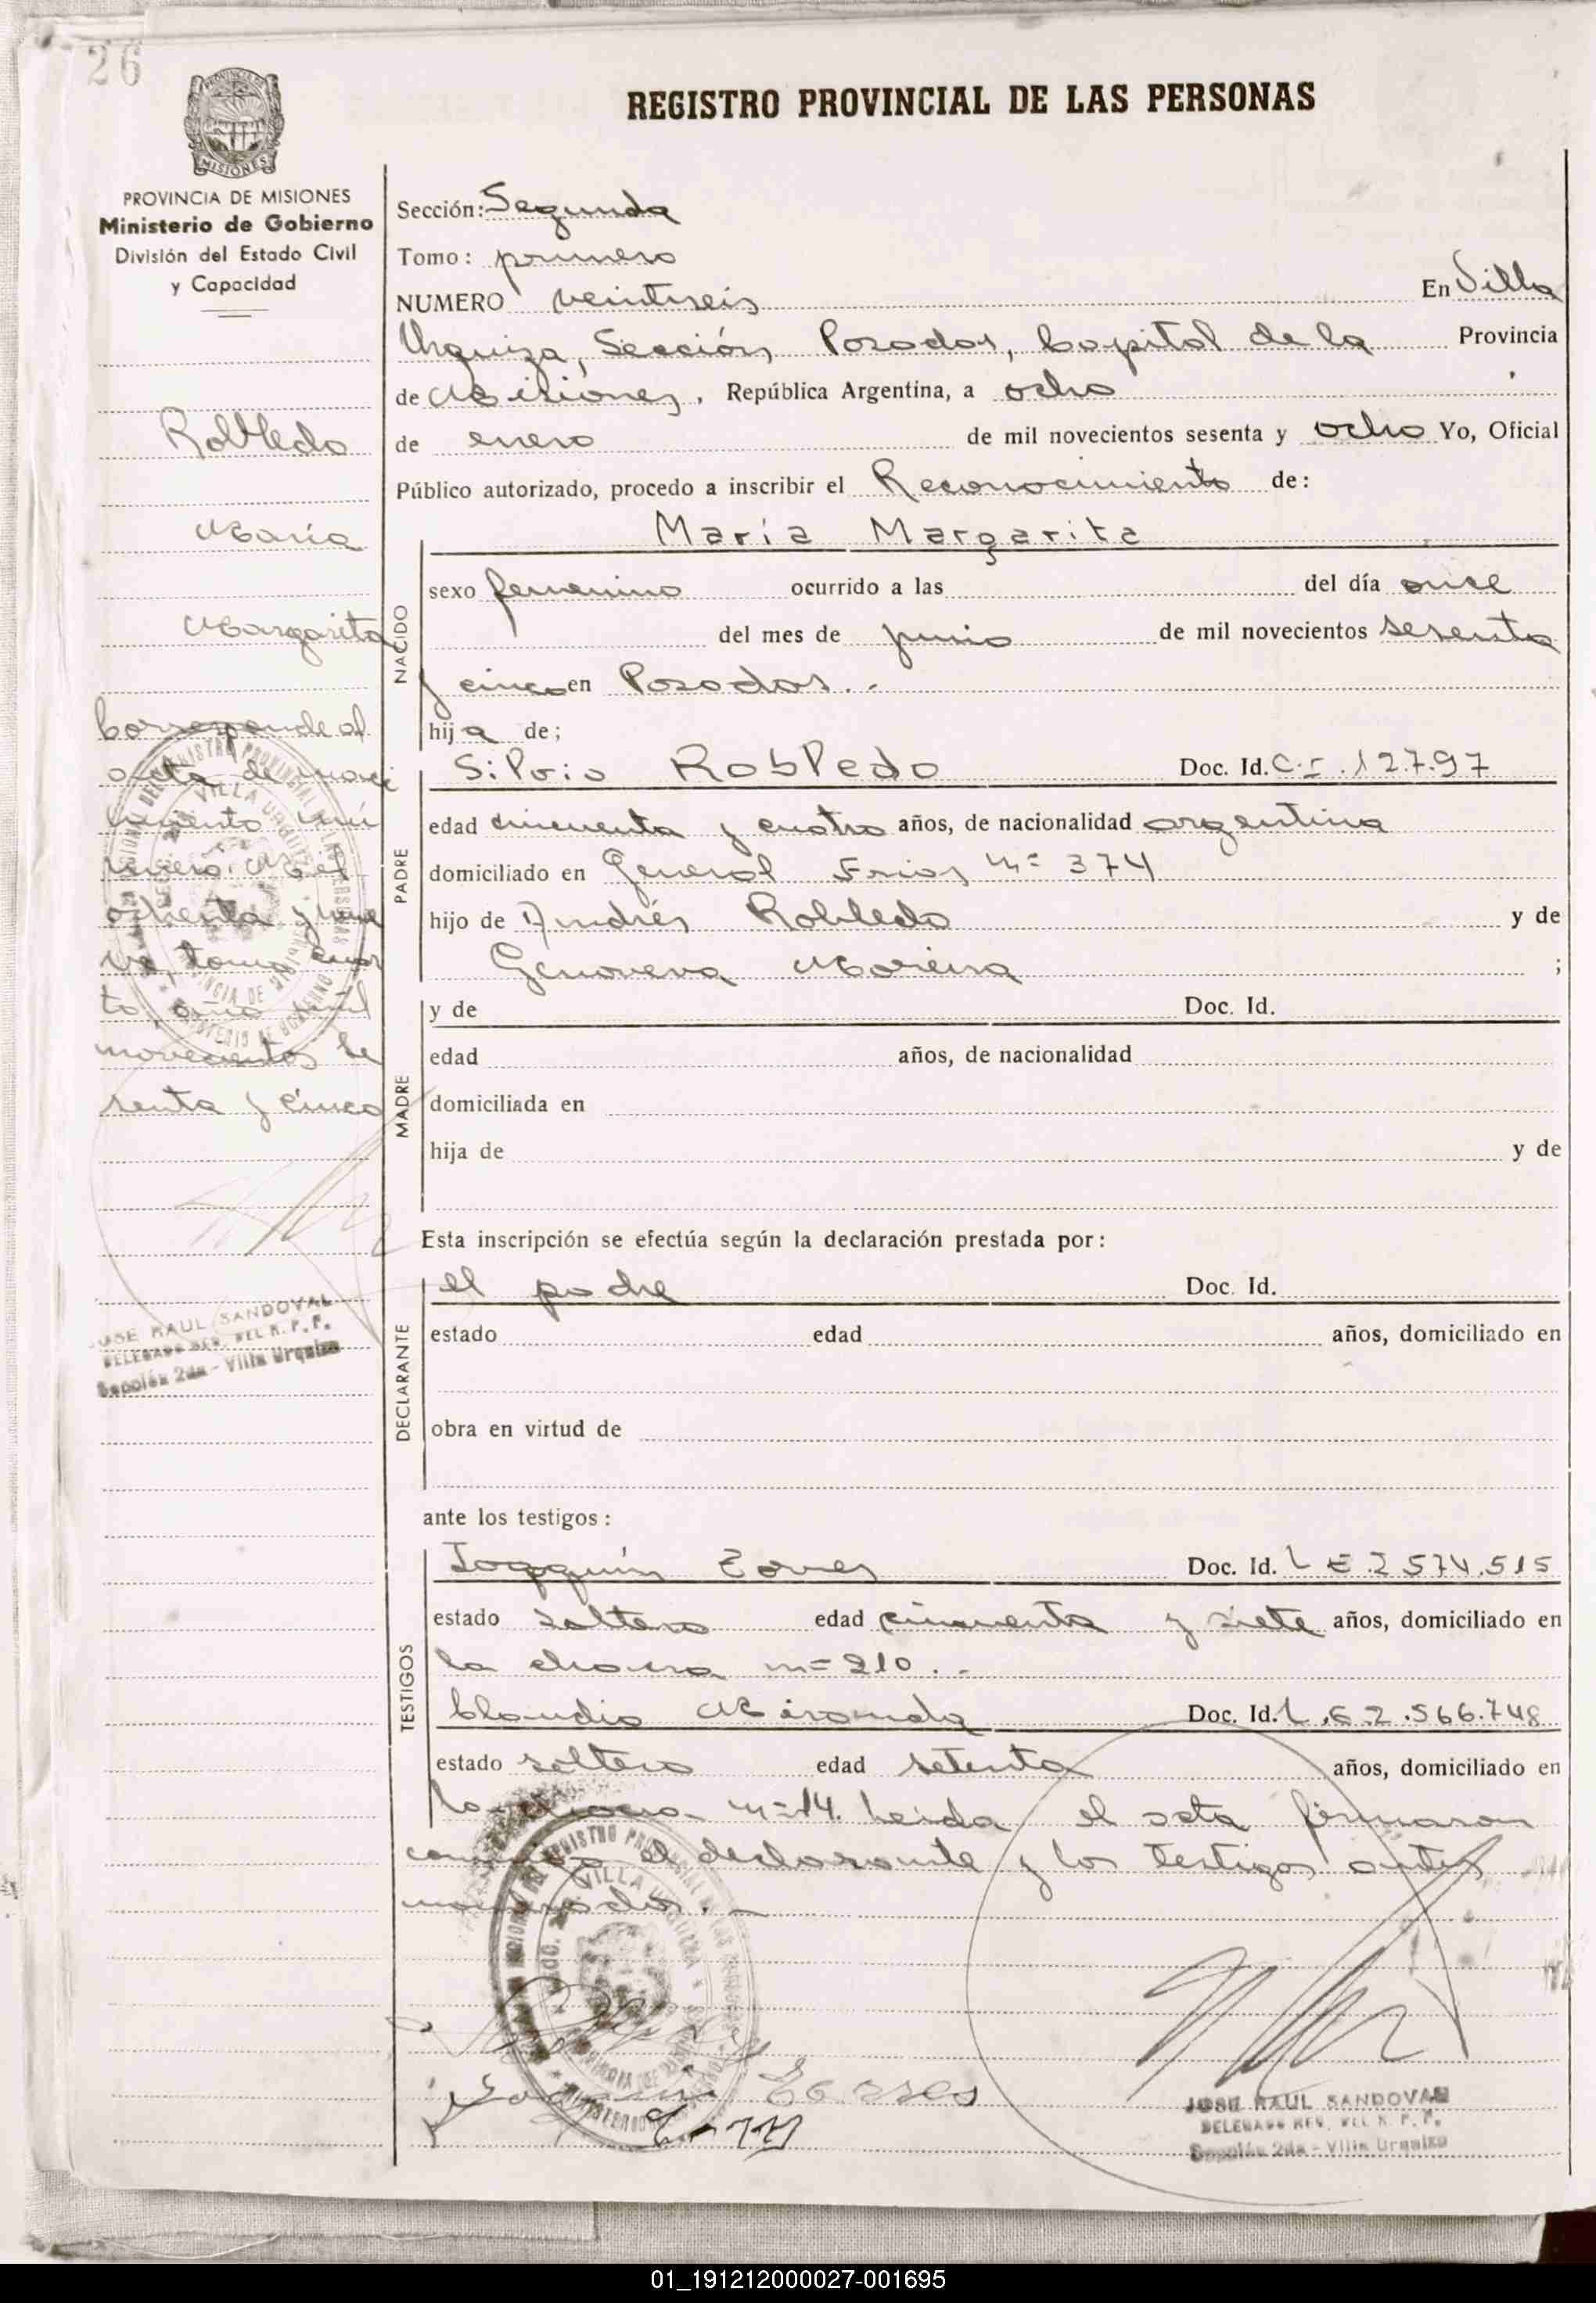 26
MISIONES
PROVINCIA DE MISIONES
Ministerio de Gobierno
División del Estado Civil
y Capacidad
Robledo
María
Margarita
Corresponde al
acta de naci
miento nú
mero. Mil
ochenta y nue
ve, tomo cuar
to, año mil
novecientos se
senta y cinco
JOSE RAUL SANDOVAL
Sección 2da - Villa Urquiza
REGISTRO PROVINCIAL DE LAS PERSONAS
Sección: Segunda
Tomo: primero
NUMERO veintiseis En Villa
Urquiza, Sección Posadas, Capital de la Provincia
de Misiones, República Argentina, a ocho
de enero de mil novecientos sesenta y ocho Yo, Oficial
Público autorizado, procedo a inscribir el Reconocimiento de:
María Margarita
NACIDO
sexo femenino ocurrido a las del día once
del mes de junio de mil novecientos sesenta
y cinco en Posadas.-
hija de;
PADRE
Silvio Robledo Doc. Id. C.I. 12.797
edad cincuenta y cuatro años, de nacionalidad argentina
domiciliado en General Frias n= 374
hijo de Andrés Robledo y de
Genoveva Moreira ;
MADRE
y de Doc. Id.
edad años, de nacionalidad
domiciliada en
hija de y de
Esta inscripción se efectúa según la declaración prestada por:
DECLARANTE
el padre Doc. Id.
estado edad años, domiciliado en
obra en virtud de
ante los testigos:
TESTIGOS
Joaquín Torres Doc. Id. L E. 2 574.515
estado soltero edad cincuenta y siete años, domiciliado en
la chacra n= 210.-
Claudio Miranda Doc. Id. L.E. 2.566.748
estado soltero edad setenta años, domiciliado en
la chacra n=14. Leida el acta firmaron
conmigo el declarante y los testigos antes
nombrados.-
JOSE RAUL SANDOVAL
Sección 2da - Villa Urquiza
01_191212000027-001695